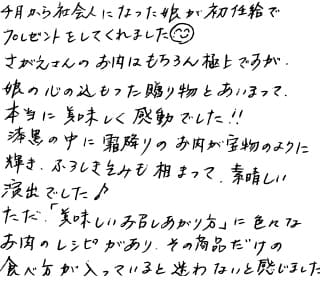 4月から社会人になった娘が初任給で
プレゼントをしてくれました☺
さがえさんのお肉はもちろん極上ですが、
娘の心の込もった贈り物とあいまって、
本当に美味しく感動でした!!
漆黒の中に霜降りのお肉が宝物のように
輝き、ふろしき包みも相まって、素晴しい
演出でした♪
ただ、「美味しいお召しあがり方」に色々な
お肉のレシピがあり、その商品だけの
食べ方が入っていると迷わないと感じました